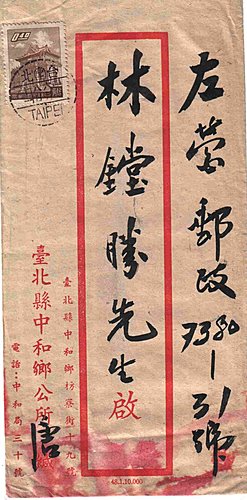 左營郵政7380-31號
林鏜勝先生啟
臺北縣中和鄉枋寮街十九號
臺北縣中和鄉公所唐
電話：中和局三十號
0.40
TAIPEI
48.1.10.000